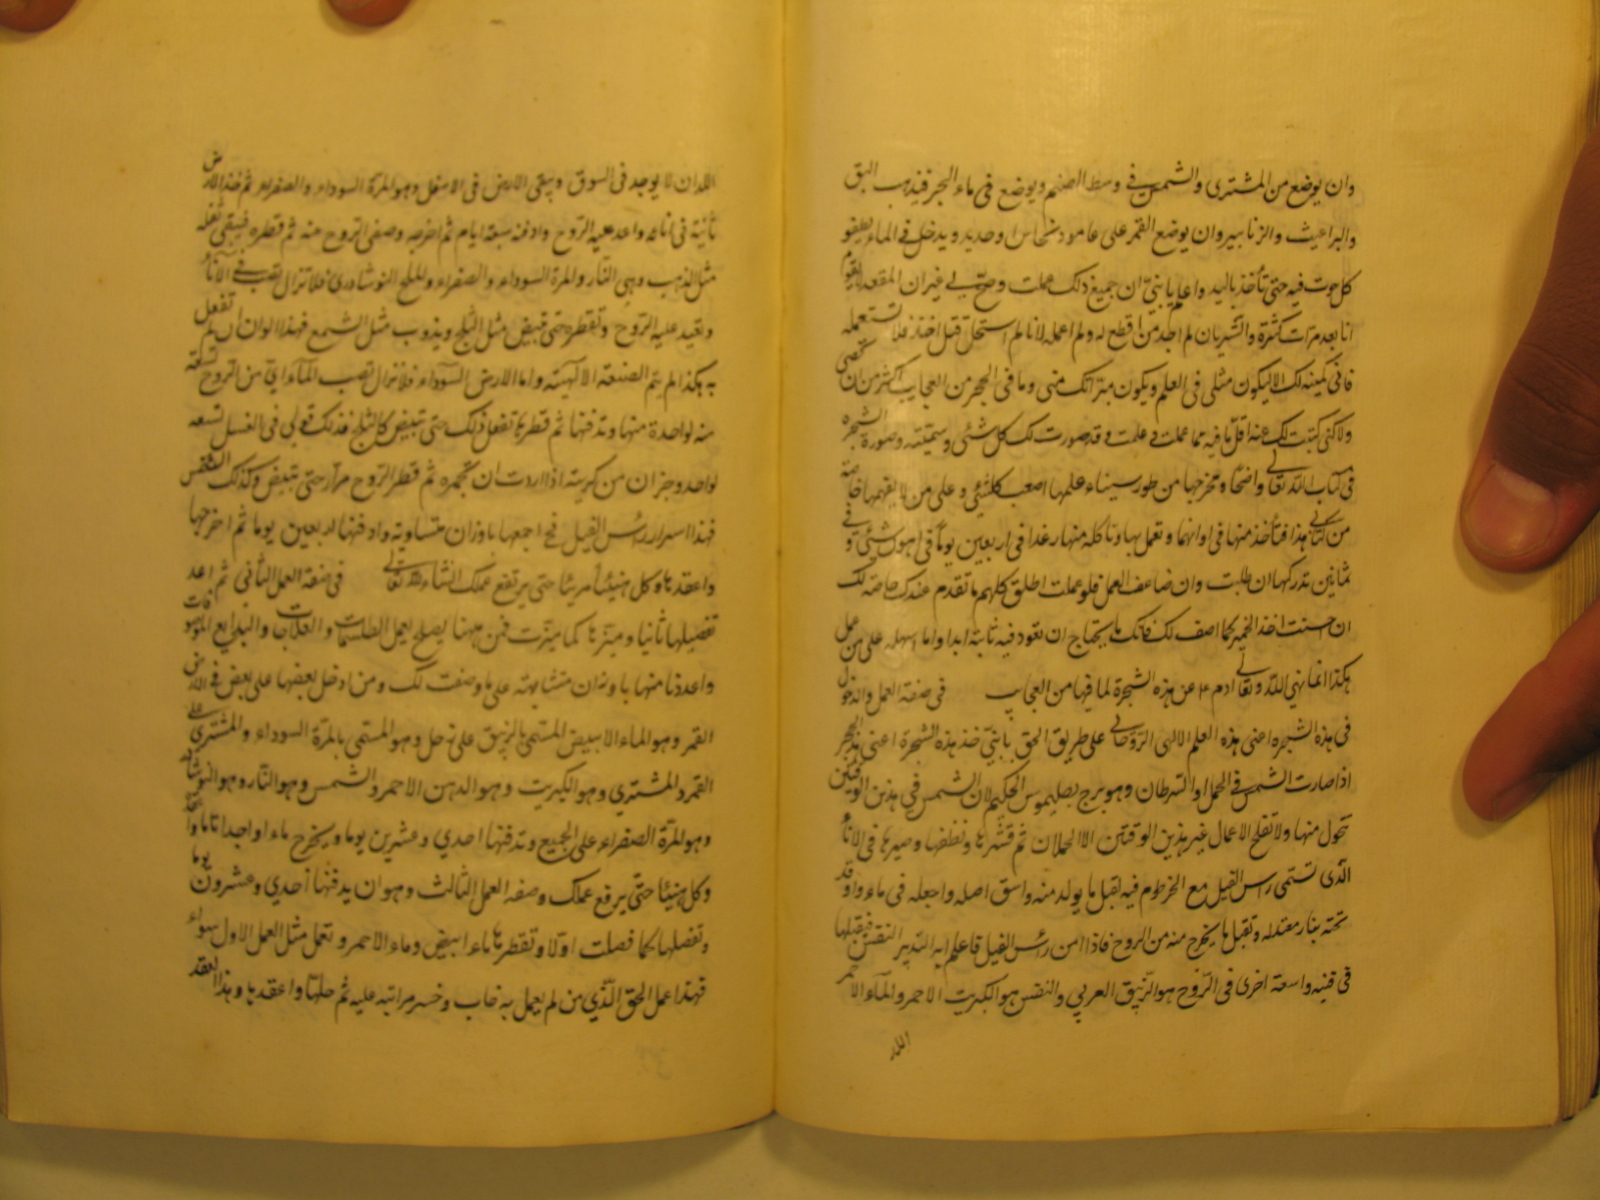 وان يوضع من المشترى والشمس فى وسط الصنم ويوضع فى ماء البحر فيذهب البق
والبراغيث والزنابير وان يوضع القمر على عامود نحاس وحديد ويدخل فى الماء يطفو
كل حوت فيه حتى تأخذ باليد واعلم يا بنى ان جميع ذلك عملت وصح لى غير ان المقعد لم يقوم
انا بعد مرات كثرة والشريان لم اجد من اقطع له ولم اعمله لانا لم استحل قتل اخذ فلا تستعمله
فانى لم يكون مثلى فى العلم ويكون منزلتك منى وما فى الحجر من العجايب اكثر من ان تحصى
ولاكنى كتبت لك عنه اقل ما فيه مما عملت وعلمت وقد صورت لك كل شئ وسميته وصورة الشجرة
فى كتاب الله تعالى واضحا ومخرجها من طور سيناء علمها اصعب كلشئ وعلى من لا يفهمها خاصة
من كتابى هذا فتأخذ منها فى اوانها وتعمل بها وتاكله منها رغدا فى اربعين يوما فى اهون شئ وفى
ثمانين تدركها ان طلبت وان ضاعف العمل فلو عملت اطلق كلهم ما تقدم عندك خاصة لك
ان احسنت اخذ الخميرة كما اصف لك فانك ما يحتاج ان تعود فيه ثانية ابدا واما اسهله على من عمل
هكذا انما نهي الله تعالى ادم ٤م عن هذه الشجرة لما فيها من العجايب فى صفة العمل والدخول
فى هذه الشجره اعنى هذه العلم الالهى الروحانى على طريق الحق يا بنى خذ هذه الشجرة اعنى هذ الحجر
اذا صارت الشمس فى الحمل او السرطان وهو برج بطليموس الحكيم لان الشمس فى هذين الوقتين
تتحول منها ولا تفلح الاعمال غير هذين الوقتين الا الحملان ثم قشرها ونظفها وصيرها فى الاناء
الذى تسمى راس الفيل مع الخرطوم فيه لقبل ما يولد منه واسق اصله واجعله فى ماء واوقد
تحته بنار معتدله وتقبل ما يخرج منه من الروح فاذا امن رئس الفيل فاعلم انه التدبير النفس فيقبلها
فى قنينه واسعة اخرى فى الروح هو الزيبق العربي والنفس هو الكبريت الاحمر والماء الاحمر
اللذ
اللذان لا يوجد فى السوق ويبقى الارض فى الاسفل وهو المرة السوداء والصفراء ثم خذ الارض
ثانية فى اناء واعد عليه الروح وادفنه سبعة ايام ثم اخرجه وصفى الروح منه ثم قطره فيبقى ثفله
مثل الذهب وهى النار والمرة السوداء والصفراء والملح النوشادرى فلا تزال تصب فى الاناء
وتعيد عليه الروح وتقطره حتى تبيض مثل الثلج ويذوب مثل الشمع فهذا الوان ان لم تفعل
به هكذا لم يتم الصنعة الالهية واما الارض السوداء فلا تزال تصب الماء اى من الروح تسعة
منه لواحدة منها وتدفنها ثم قطرها تفعل ذلك حتى تبيض كالثلج فذلك قولى فى الغسل تسعه
لواحد وجزان من كبريته اذا اردت ان تحمره ثم قطر الروح مرارحتى تبيض وكذلك النفس
فهذا اسرار رئس الفيل فح اجمعها باوزان متساويه وادفنها اربعين يوما ثم اخرجها
واعقدها وكل هنيئا مريئا حتى يرتفع عملك انشاء الله تعالى فى صفة العمل الثانى ثم اعد
تفصيلها ثانيا وميزها كما ميزت فمن ههنا يصلح لعمل الطلسمات والعلاجات والبدايع الموصوفات
واعدنا منها باوزان متشابهة على ما وصفت لك ومن ادخل بعضها على بعض فى الارض
القمر وهو الماء الابيض المسمى بالزيبق على زحل وهو المسمى بالمرة السوداء والمشترى على
القمر والمشترى وهو الكبريت وهو الدهن الاحمر والشمس وهو النار وهو النوشادر
وهو المرة الصفراء على الجميع وتدفنها احدى وعشرين يوما ويخرج ماء او احدا تاما واعقد
وكل هنيئا حتى يرفع عملك وصفه العمل الثالث وهو ان يدفنها احدي وعشرون يوما
وتفصلها كما فصلت اولا وتقطرها ماء ابيض وماء الاحمر وتعمل مثل العمل الاول سواء
فهذا عمل الحق الذي من لم يعمل به خاب وخسر مراتبه عليه ثم حلها واعقدها وهذا العقد